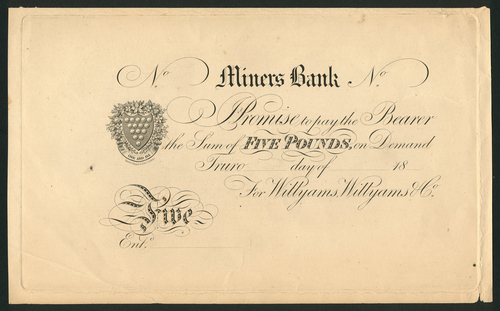 No. Miners Bank. No.
I Promise to pay the Bearer
the Sum of FIVE POUNDS, on Demand
Truro day of 18
For Willyams, Willyams & Co.
Five
Ent.d
ONE AND ALL